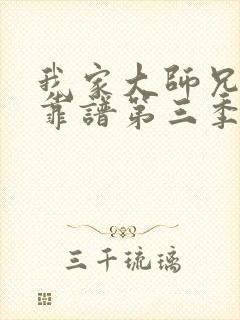 我家大師兄
靠譜第三季
三千琉璃